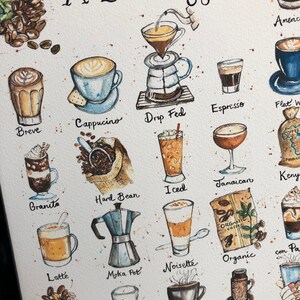 Breve
Cappucino
Drip Fed
Espresso
Flat W
Branito
Hard Bean
Iced
Jamaican
Keny
Latté
Moka Pot
Noisette
Organic
con Pa